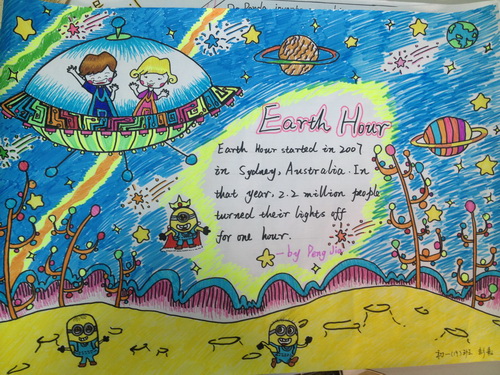 Earth Hour
Earth Hour started in 2007
in Sydney, Australia. In
that year, 2.2 million people
turned their lights off
for one hour.
—by Peng Jia